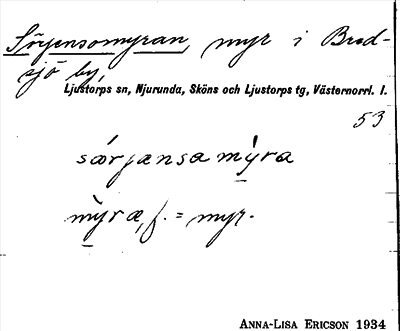 Sörjensomyran, myr i Bred-
sjö by,
Ljustorps sn, Njurunda, Sköns och Ljustorps tg, Västernorrl. l.
53
særjænsa mỳra
mỳræ, f. = myr.
ANNA-LISA ERICSON 1934